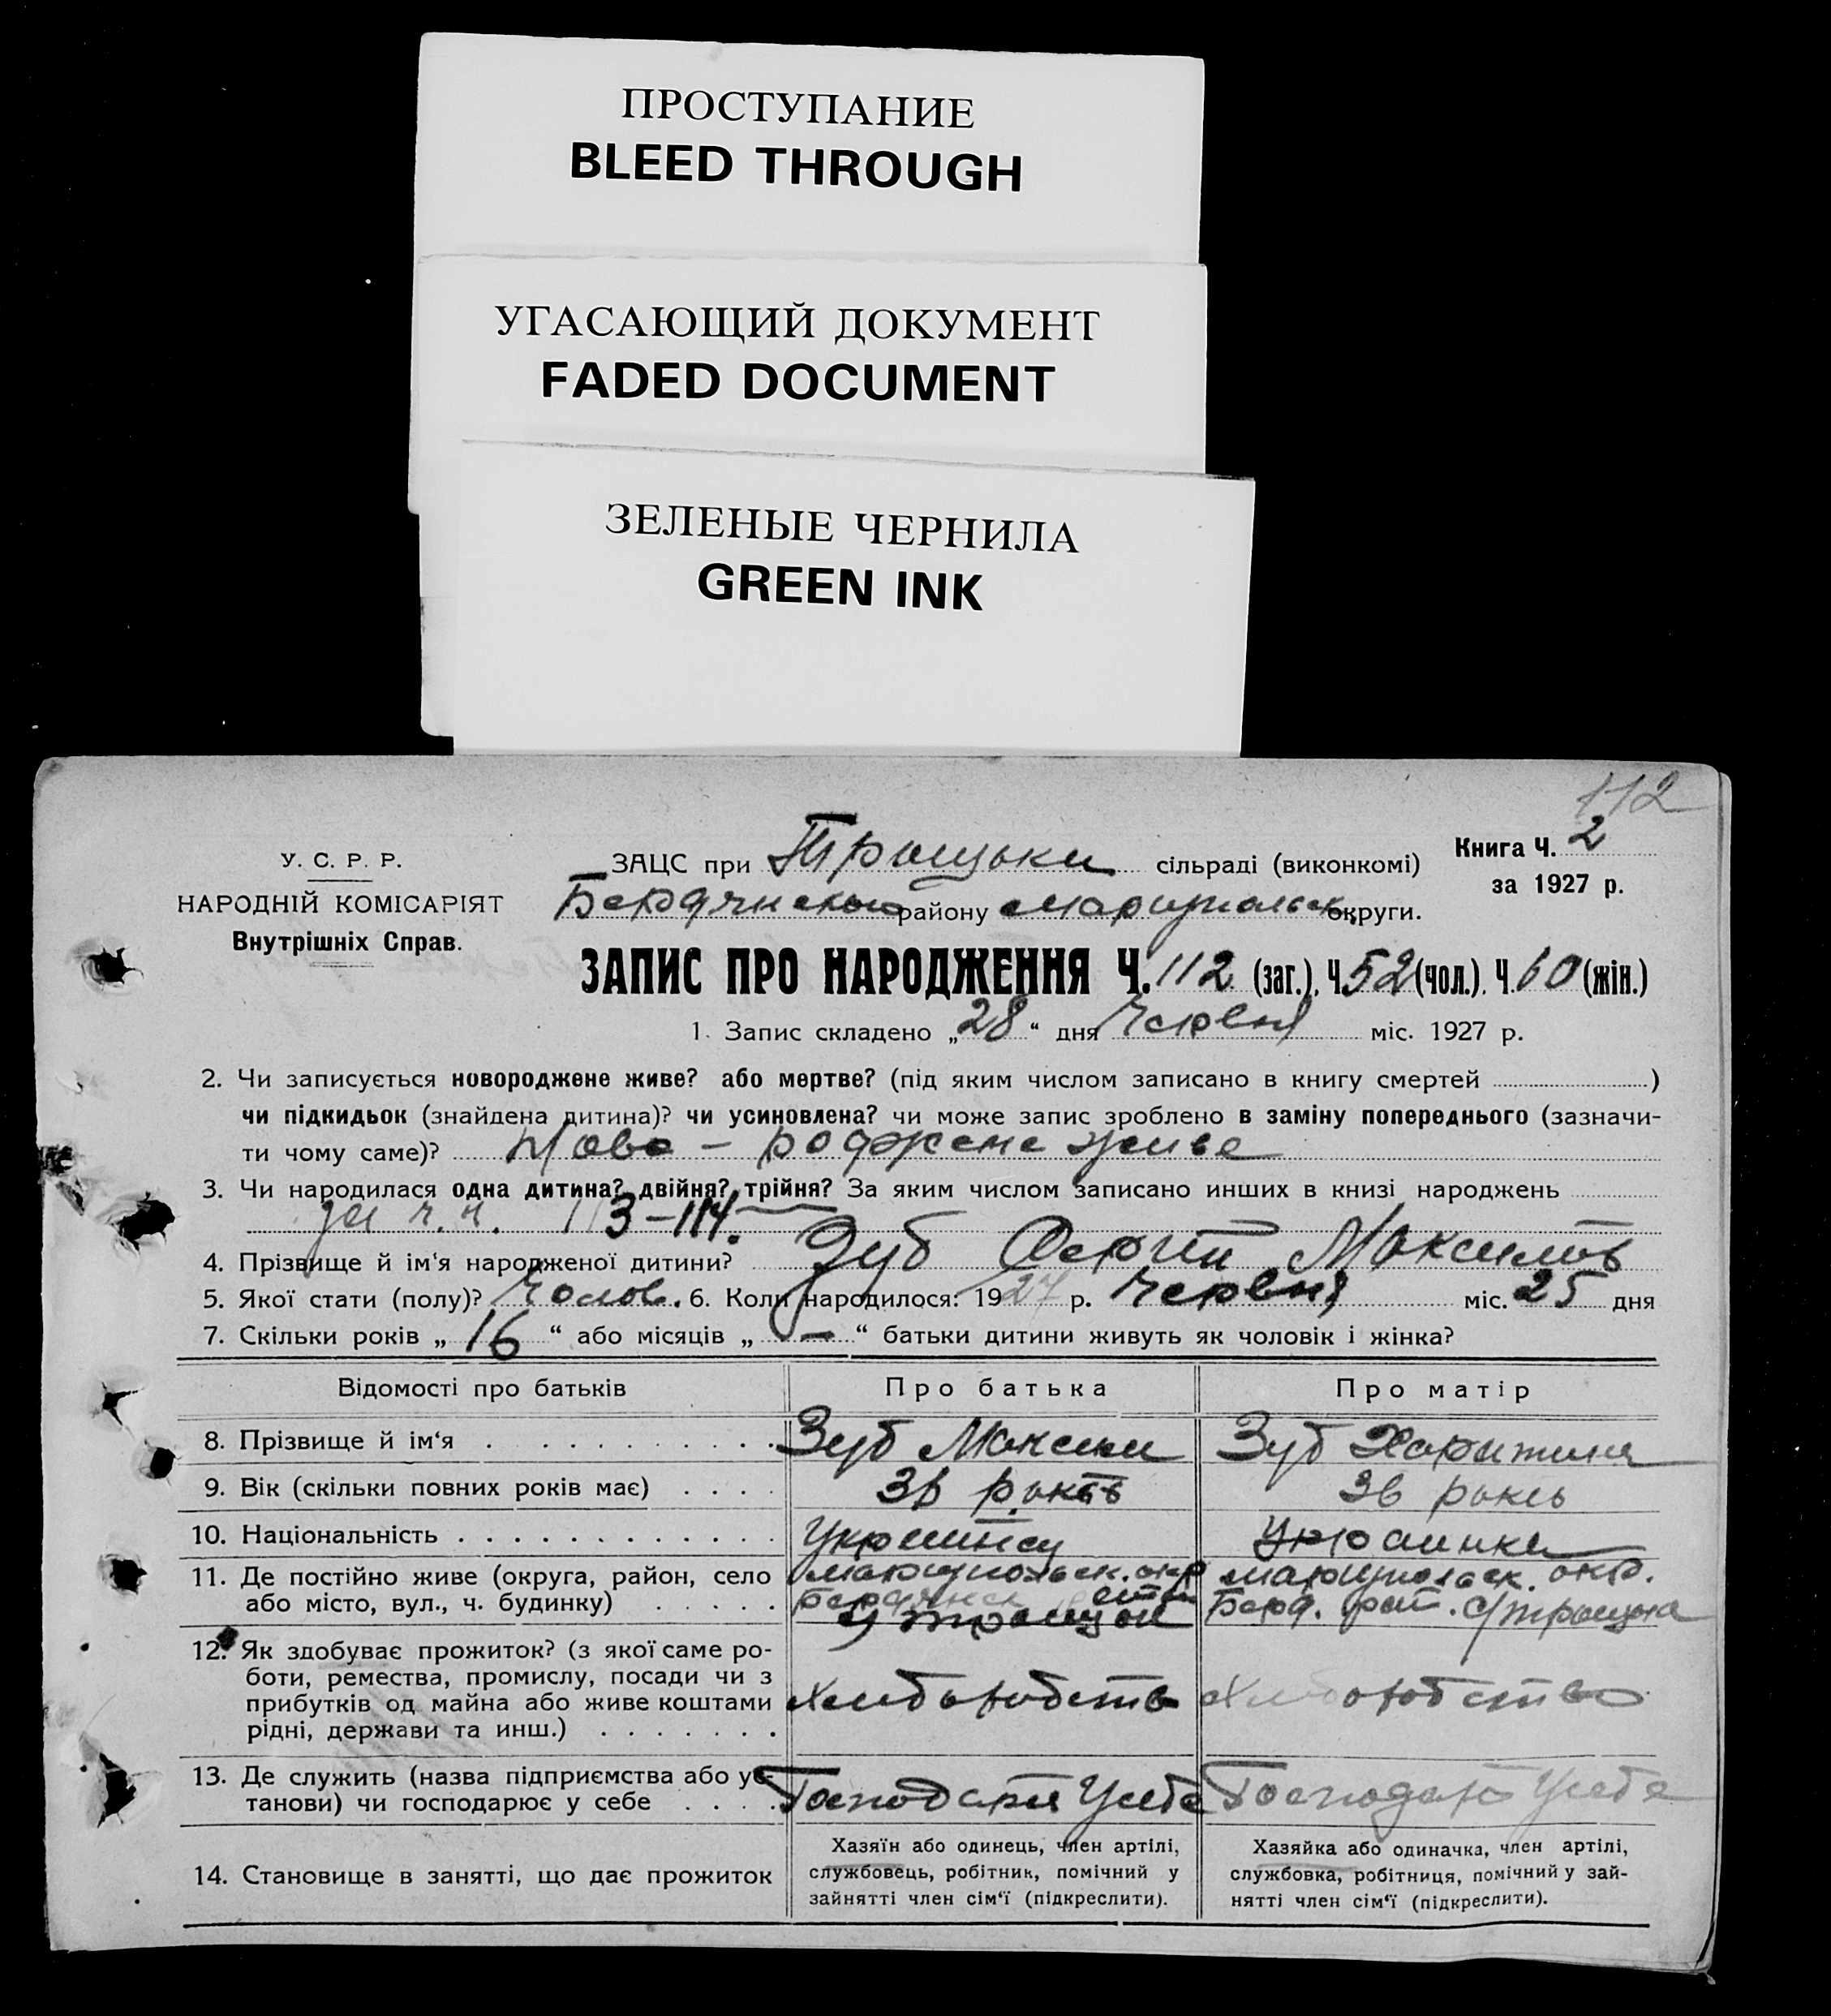 ПРОСТУПАНИЕ
BLEED THROUGH
УГАСАЮЩИЙ ДОКУМЕНТ
FADED DOCUMENT
ЗЕЛЕНЫЕ ЧЕРНИЛА
GREEN INK
112
У. С. Р. Р.
НАРОДНІЙ КОМІСАРІЯТ
Внутрішніх Справ.
ЗАЦС при сільраді (виконкомі)
Книга Ч. 2
за 1927 р.
району округи.
ЗАПИС ПРО НАРОДЖЕННЯ Ч. 112 (заг.), Ч. 52 (чол.). Ч. 60 (жін.)
1. Запис складено „28“ дня Червня міс. 1927 р.
2. Чи записується новороджене живе? або мертве? (під яким числом записано в книгу смертей )
чи підкидьок (знайдена дитина)? чи усиновлена? чи може запис зроблено в заміну попереднього (зазначи-
ти чому саме)? Ново – роджене живе
3. Чи народилася одна дитина? двійня? трійня? За яким числом записано инших в книзі народжень
за ч. ч. 113–114.
4. Прізвище й ім‘я народженої дитини? Зуб Сергій Максимов
5. Якої стати (полу)? Чолов. 6. Коли народилося: 1927 р. Червня міс. 25 дня
7. Скільки років „16“ або місяців „—“ батьки дитини живуть як чоловік і жінка?
Відомості про батьків
Про батька
Про матір
8. Прізвище й ім‘я
Зуб Максим
Зуб Харитина
9. Вік (скільки повних років має)
36 років
36 років
10. Національність
11. Де постійно живе (округа, район, село
або місто, вул., ч. будинку)
Маріупольск. окр
Маріупольск. окр.
Берд. рай.
12. Як здобуває прожиток? (з якої саме ро-
боти, ремества, промислу, посади чи з
прибутків од майна або живе коштами
рідні, держави та инш.)
13. Де служить (назва підприємства або ус-
танови) чи господарює у себе
14. Становище в занятті, що дає прожиток
Хазяїн або одинець, член артілі,
службовець, робітник, помічний у
зайнятті член сім‘ї (підкреслити).
Хазяйка або одиначка, член артілі,
службовка, робітниця, помічний у зай-
нятті член сім‘ї (підкреслити).